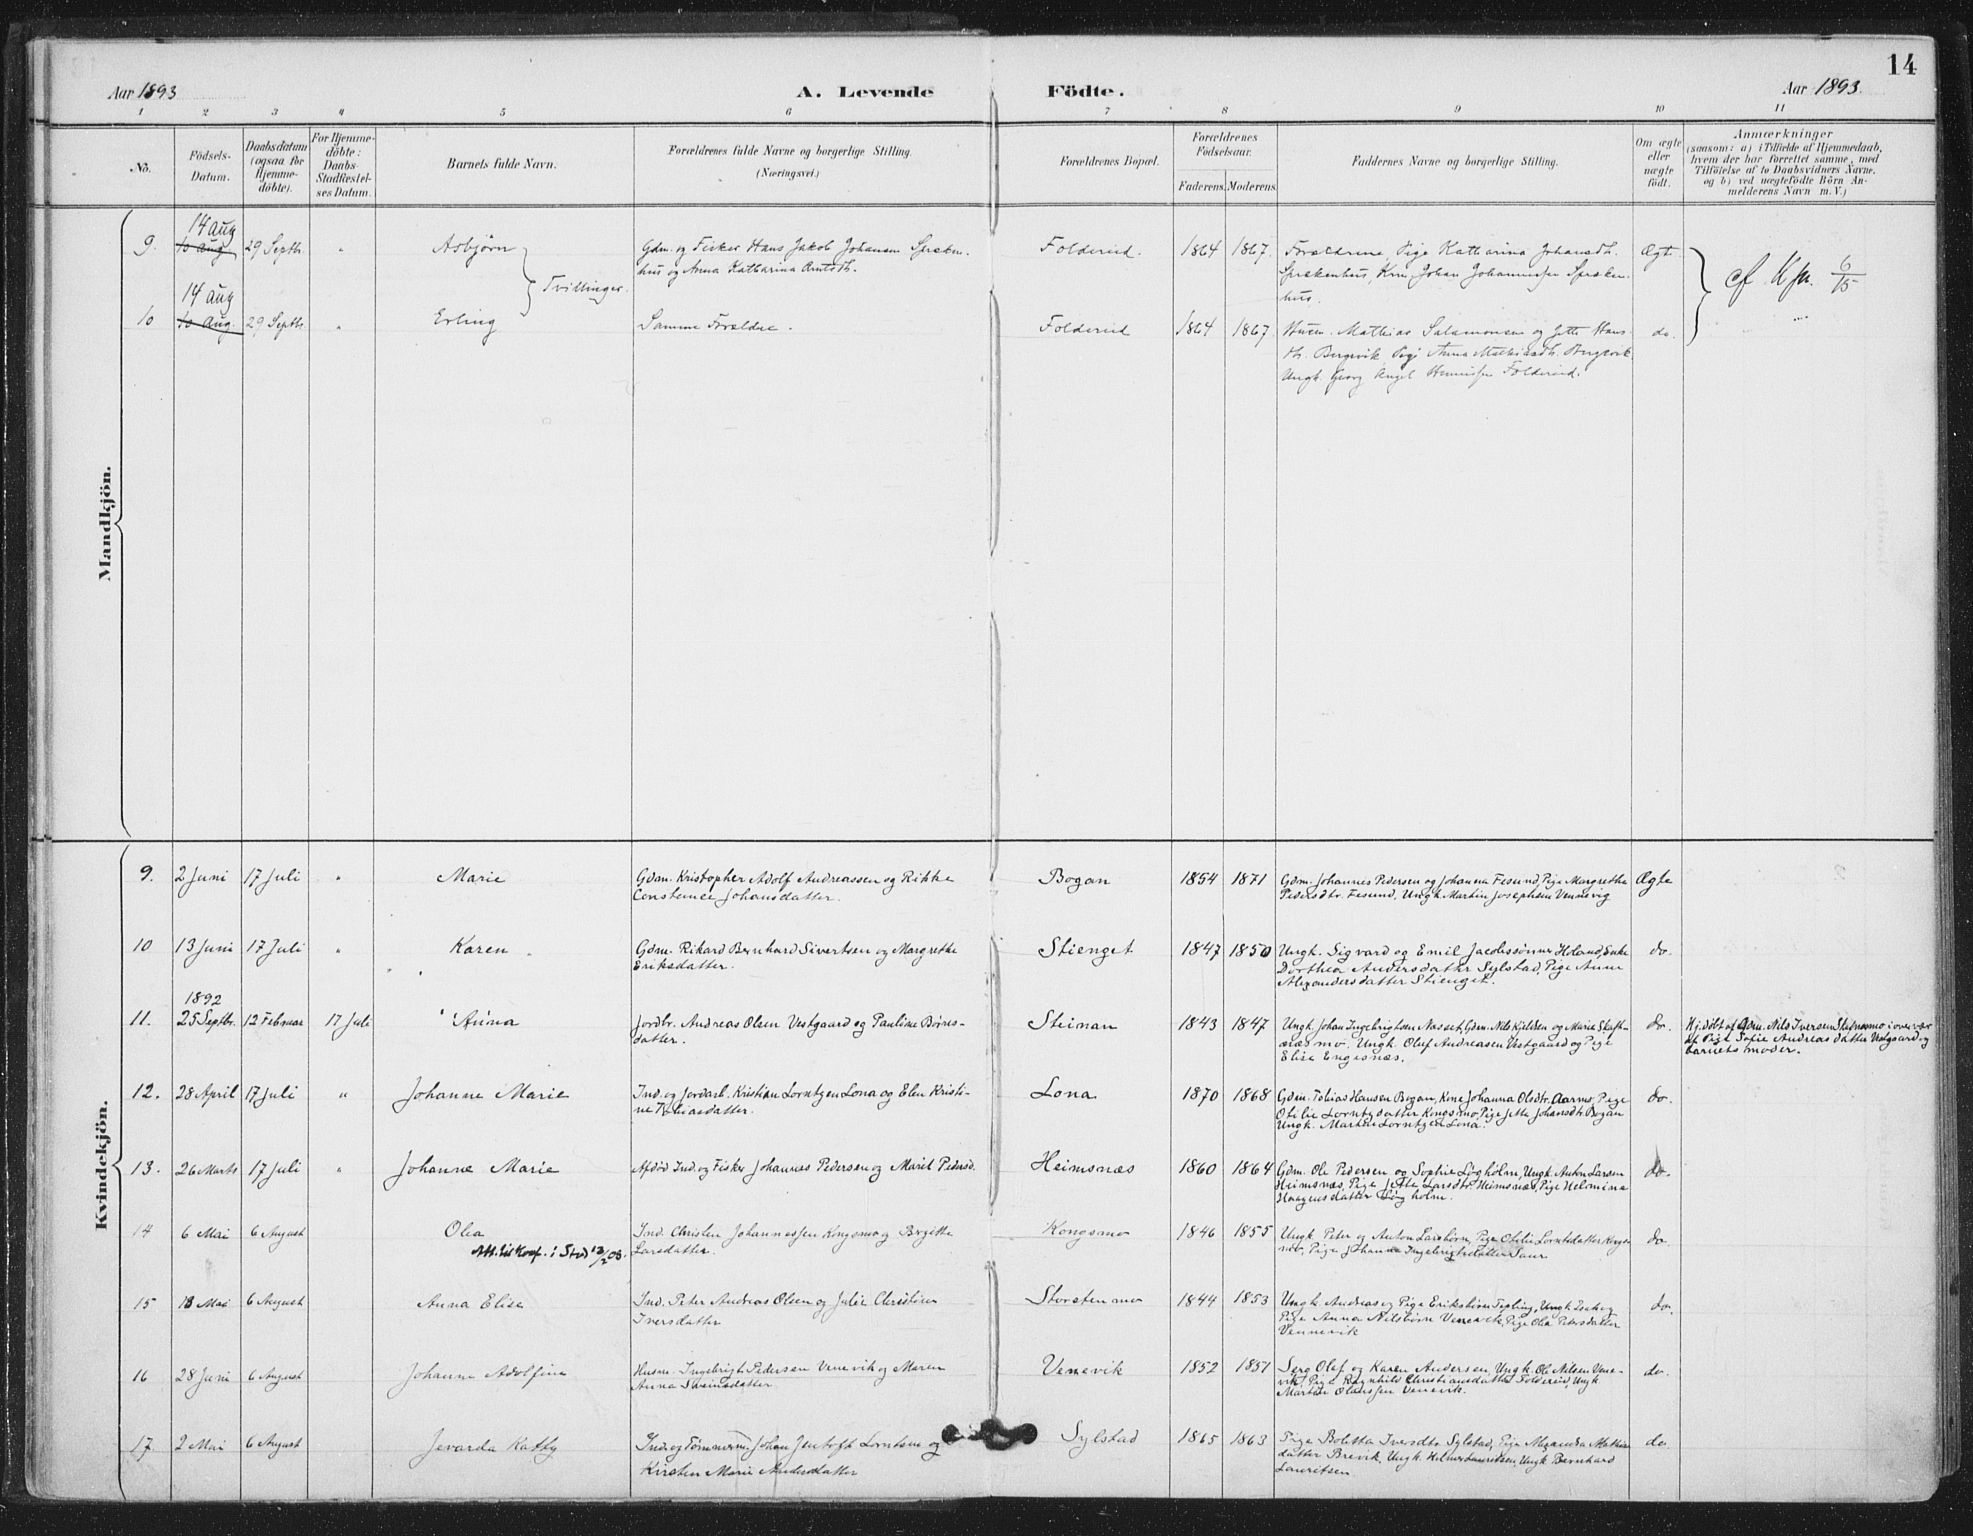 14
Aar 1893 A. Levende Födte. Aar 1893.
1 2 3 4 5 6 7 8 9 10 11
No. Födsels-Datum. Daabsdatum (ogsaa for Hjemme-döbte). For Hjemme-döbte: Daabs-Stadfæstel-ses Datum. Barnets fulde Navn. Forældrenes fulde Navne og borgerlige Stilling. (Næringsvei.) Forældrenes Bopæl. Forældrenes Födselsaar. Faderens. Moderens. Faddernes Navne og borgerlige Stilling. Om ægte eller uægte födt. Anmærkninger (saasom: a) i Tilfælde af Hjemmedaab, hvem der har forrettet samme, med Tilföielse af to Daabsvidners Navne, og b) ved uægtefödte Börn An-melderens Navn m. V.)
Mandkjön.
14 aug
9. 10 aug 29 Septb. " Asbjørn Gdm. og Fisker Hans Jakob Johansen Spræken- Foldereid. 1864 1867. Forældrene, Pige Katharina Johansdt. Ægte
hus og Anna Katharina Arntsdt. Sprækenhus, Kone Johan Johannessen Spræken-
Tvillinger. hus. cf. 6/15
14 aug
10 10 aug. 29 Septb. " Erling Samme Forældre. Foldereid 1864 1867. Husm. Mathias Salamonsen og Jette Hans- do.
dt. Bergsvik Pige Anna Mathiasdt. Bergsvik
Ungk. Georg Angel Foldereid.
Kvindekjön.
9. 2 Juni 17 Juli " Marie Gdm. Kristopher Adolf Andreassen og Rikke Bogan 1854 1871 Gdm. Johannes Pedersen og Johanna Fesund, Pige Margrethe Ægte
Constance Johansdatter. Pedersdtr. Fesund, Ungk. Martin Josephsen Vennevig
10 13 Juni 17 Juli " Karen Gdm. Rikard Bernhard Sivertsen og Margrethe Stienget 1847 1850 Ungk. Sigvard og Emil Jacobssønner Høland, Enke do.
Eriksdatter. Dorthea Andersdatter Sylstad, Pige Anne
Alexandersdatter Stienget.
1892
11. 25 Septbr. 12 Februar 17 Juli Anna Jordbr. Andreas Olsen Vestgaard og Pauline Børres- Steinan 1843 1847 Ungk. Johan Ingebrigtsen Nasset, Gdm. Nils Kjeldsen og Marie do. Hj. døbt af Gdm. Nils Iversen i overvær
datter. Ungk. Oluf Andreasen Vestgaard og Pige af Pige Sofie Andreasdatter Vestgaard og
Elise Engesnæs. barnets moder.
12. 28 April 17 Juli " Johanne Marie Ind. og Jordarb. Kristian Lorntzen Lona og Elen Kristi- Lona 1870 1868 Gdm. Tobias Hansen Bogan, Kone Johanna Olsdtr. Aarmo, Pige do.
ne Tobiasdatter. Otilie Lorntzdatter Kongsmo, Pige Jette Johansdtr. Bogan
Ungk. Martin Lorntzen Lona.
13. 26 Marts 17 Juli " Johanne Marie Afdød Ind. og Fisker Johannes Pedersen og Marit Pedersd. Heimsnæs 1860 1864 Gdm. Ole Pedersen og Sophie Løgholm, Ungk. Anton Larsen do.
Heimsnæs, Pige Jette Larsdtr. Heimsnæs, Pige Helmine
Haagensdatter Løgholm.
14 6 Mai 6 August Olea Ind. Christen Johannessen Kongsmo og Birgitte Kongsmo 1846 1855 Ungk. Peter og Anton Larsbørn, Pige Otilie Lorntsdatter Kongs- do.
Att. til Konf. i Stod 13/2 08. Larsdatter. mo, Pige Johanna Ingebrigtsdatter Saur
15 13 Mai 6 August Anna Elise Ind. Peter Andreas Olsen og Julie Christine Storstenmo 1844 1853 Ungk. Andreas og Pige Eriksbørn Tepling, Ungk. Isak og do.
Iversdatter Pige Anna Nilsbørn Venevik, Pige Olea Petersdatter
Vennevik
16 28 Juni 6 August Johanne Adolfine Husm. Ingebrigt Pedersen Venevik og Maren Venevik 1852 1851 Serg. Olaf og Karen Andersen, Ungk. Ole Nilsen Vene- do.
Anna Svensdatter vik, Pige Ragnhild Christiansdatter Folderein, Ungk.
Martin Olaussen Venevik.
17. 2 Mai 6 August Jevarda Kathy Ind. og Tømmerm. Johan Jentoft Lorntsen og Sylstad 1865 1863 Pige Boletta Iversdtr. Sylstad, Pige Alexandra Mathias- do.
Kirsten Marie Andersdatter datter Brevik, Ungk. Helmer Lauritsen, Ungk. Bernhard
Lauritsen.